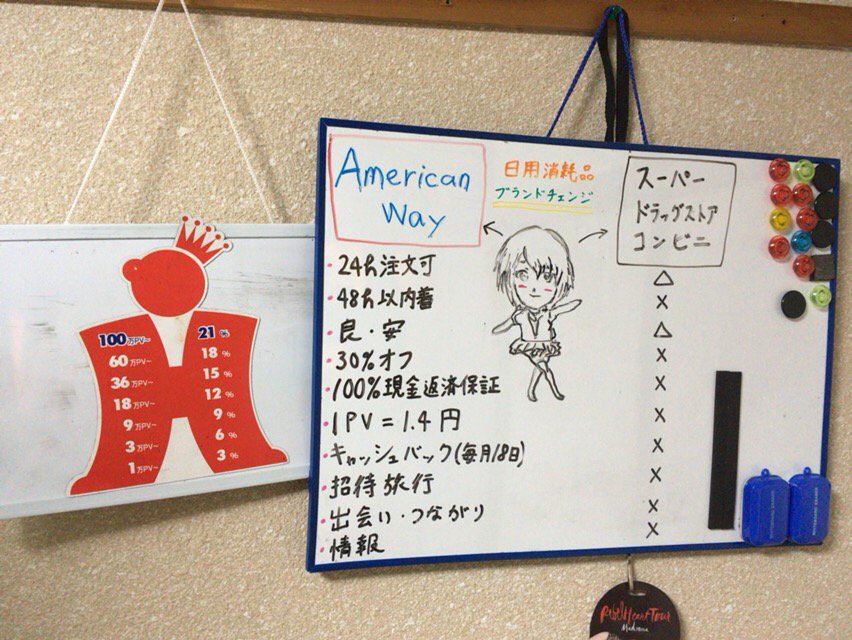 100万PV~ 21%
60万PV~ 18%
36万PV~ 15%
18万PV~ 12%
9万PV~ 9%
3万PV~ 6%
1万PV~ 3%
American
Way
日用消耗品
ブランドチェンジ
スーパー
ドラッグストア
コンビニ
・24h注文可 △
・48h以内着 ×
・良・安 △
・30%オフ ×
・100%現金返済保証 ×
・1PV=1.4円 ×
・キャッシュバック(毎月18日) ×
・招待旅行 ×
・出会い・つながり ×
・情報 ×
Rebel Heart Tour
Madonna